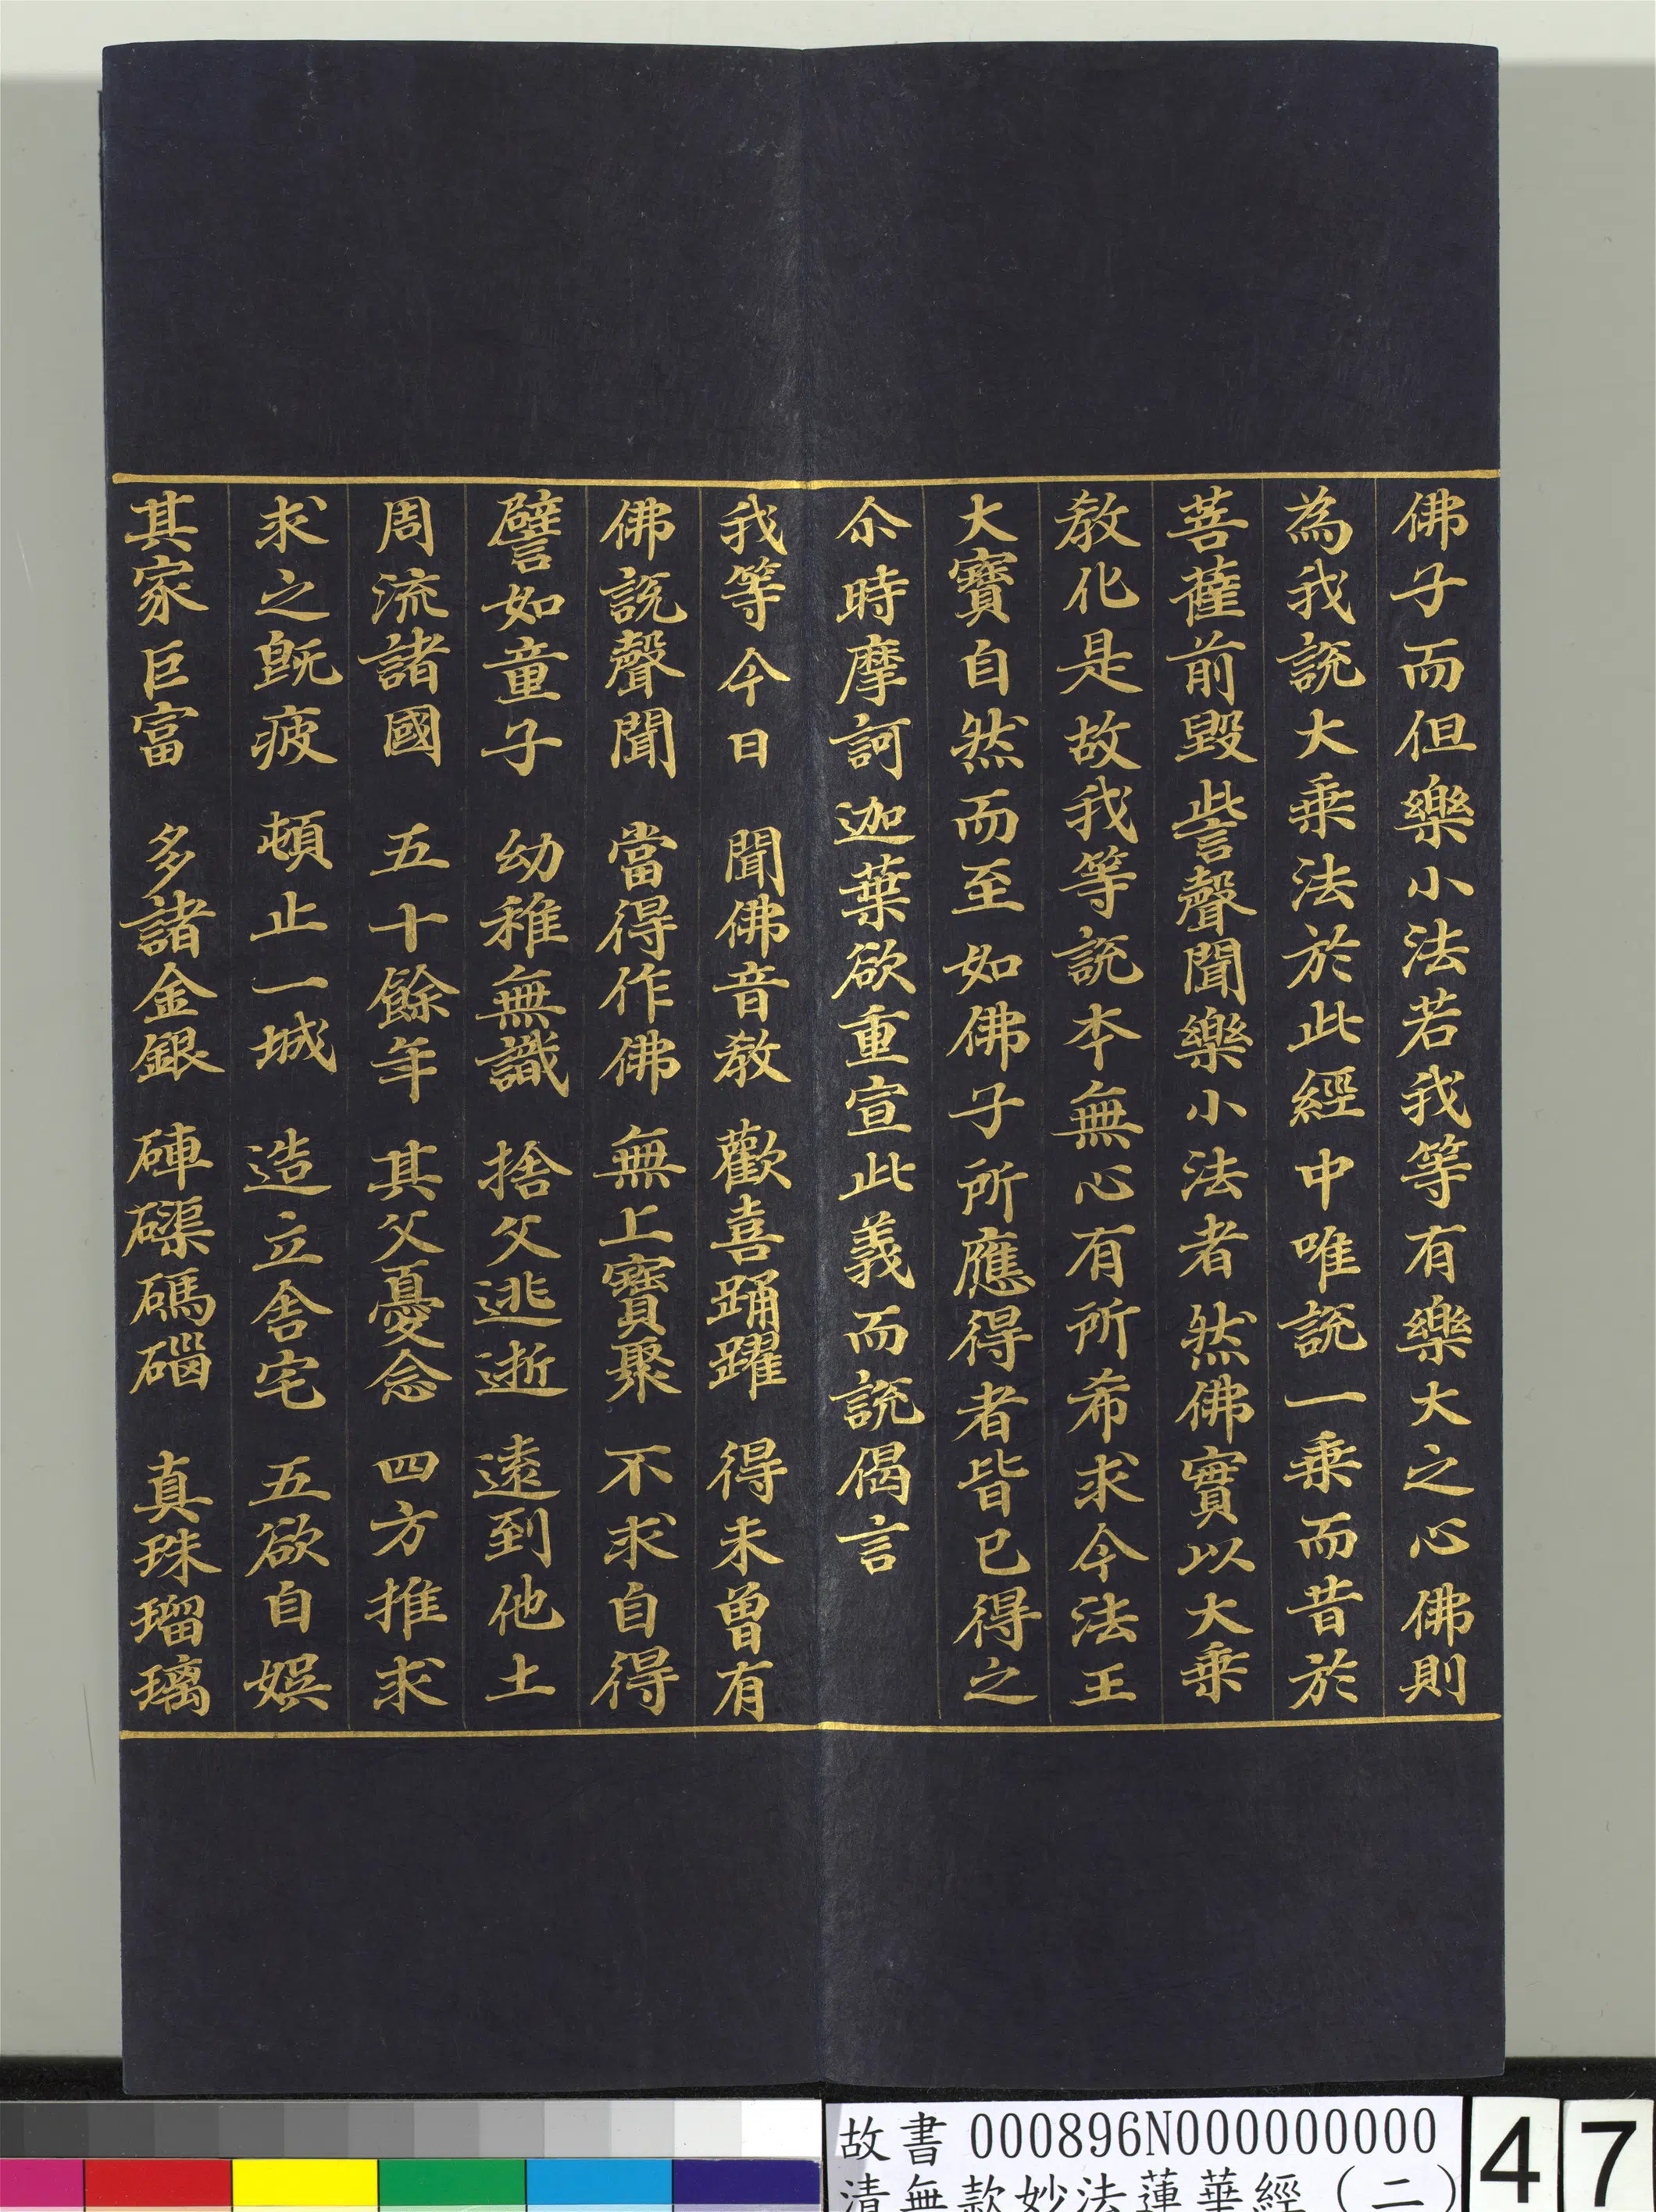 佛子而但樂小法若我等有樂大之心佛則
為我說大乗法於此經中唯說一乗而昔於
菩薩前毀訾聲聞樂小法者然佛實以大乗
教化是故我等說本無心有所希求今法王
大寶自然而至如佛子所應得者皆已得之
尒時摩訶迦葉欲重宣此義而說偈言
我等今日 聞佛音教 歡喜踊躍 得未曾有
佛說聲聞 當得作佛 無上寶聚 不求自得
譬如童子 幼稚無識 捨父逃逝 遠到他土
周流諸國 五十餘年 其父憂念 四方推求
求之旣疲 頓止一城 造立舍宅 五欲自娛
其家巨富 多諸金銀 硨磲碼碯 真珠瑠璃
故書 000896N000000000
清無款妙法蓮華經(二)
47